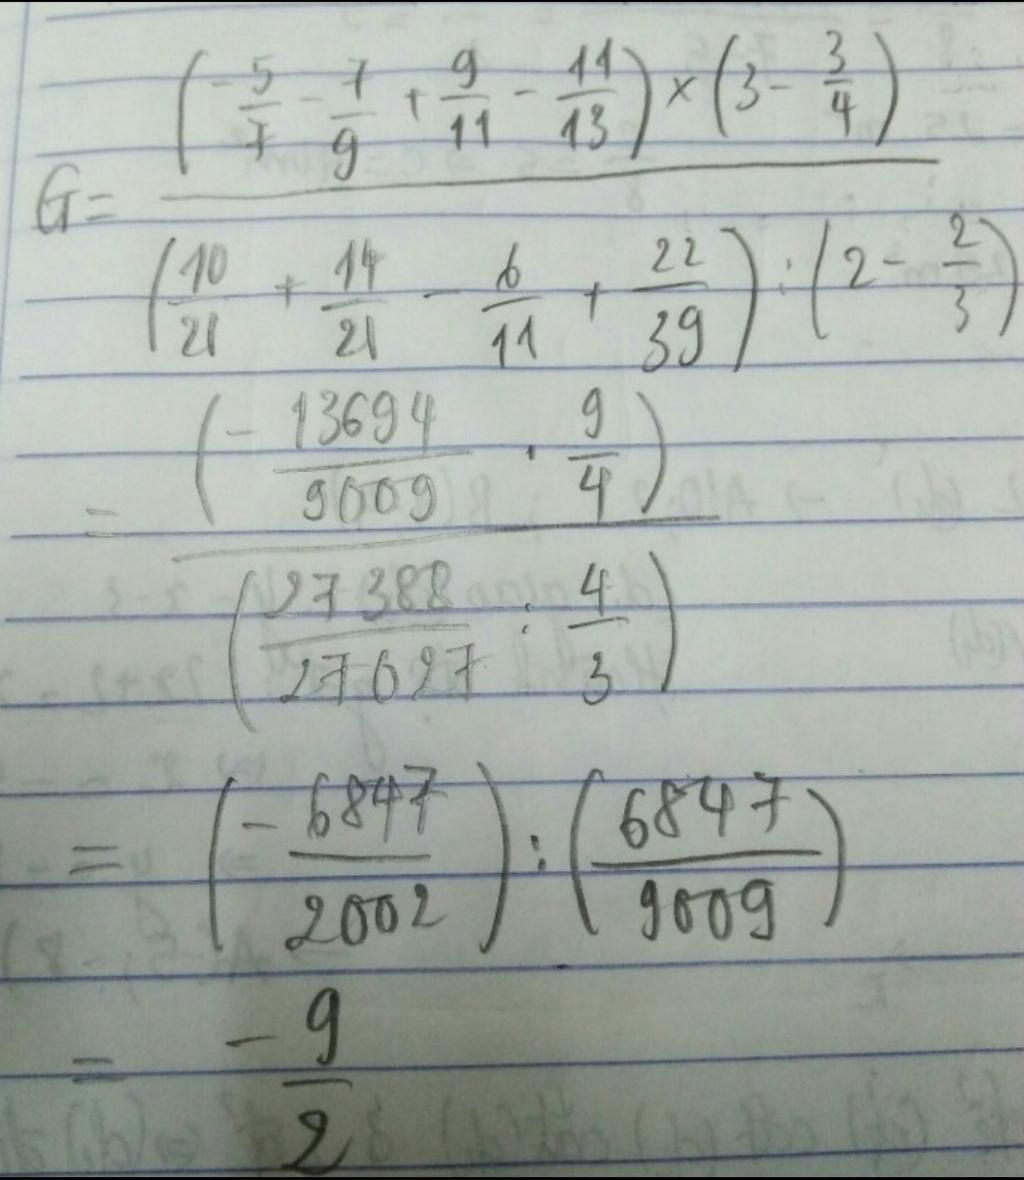 G = ((-5/7 - 7/9 + 9/11 - 11/13) × (3 - 3/4)) / ((10/21 + 14/21 - 6/11 + 22/39) : (2 - 2/3))
= (- 13694/9009 . 9/4) / (27388/27027 : 4/3)
= (- 6847/2002) : (6847/9009)
= - 9/2